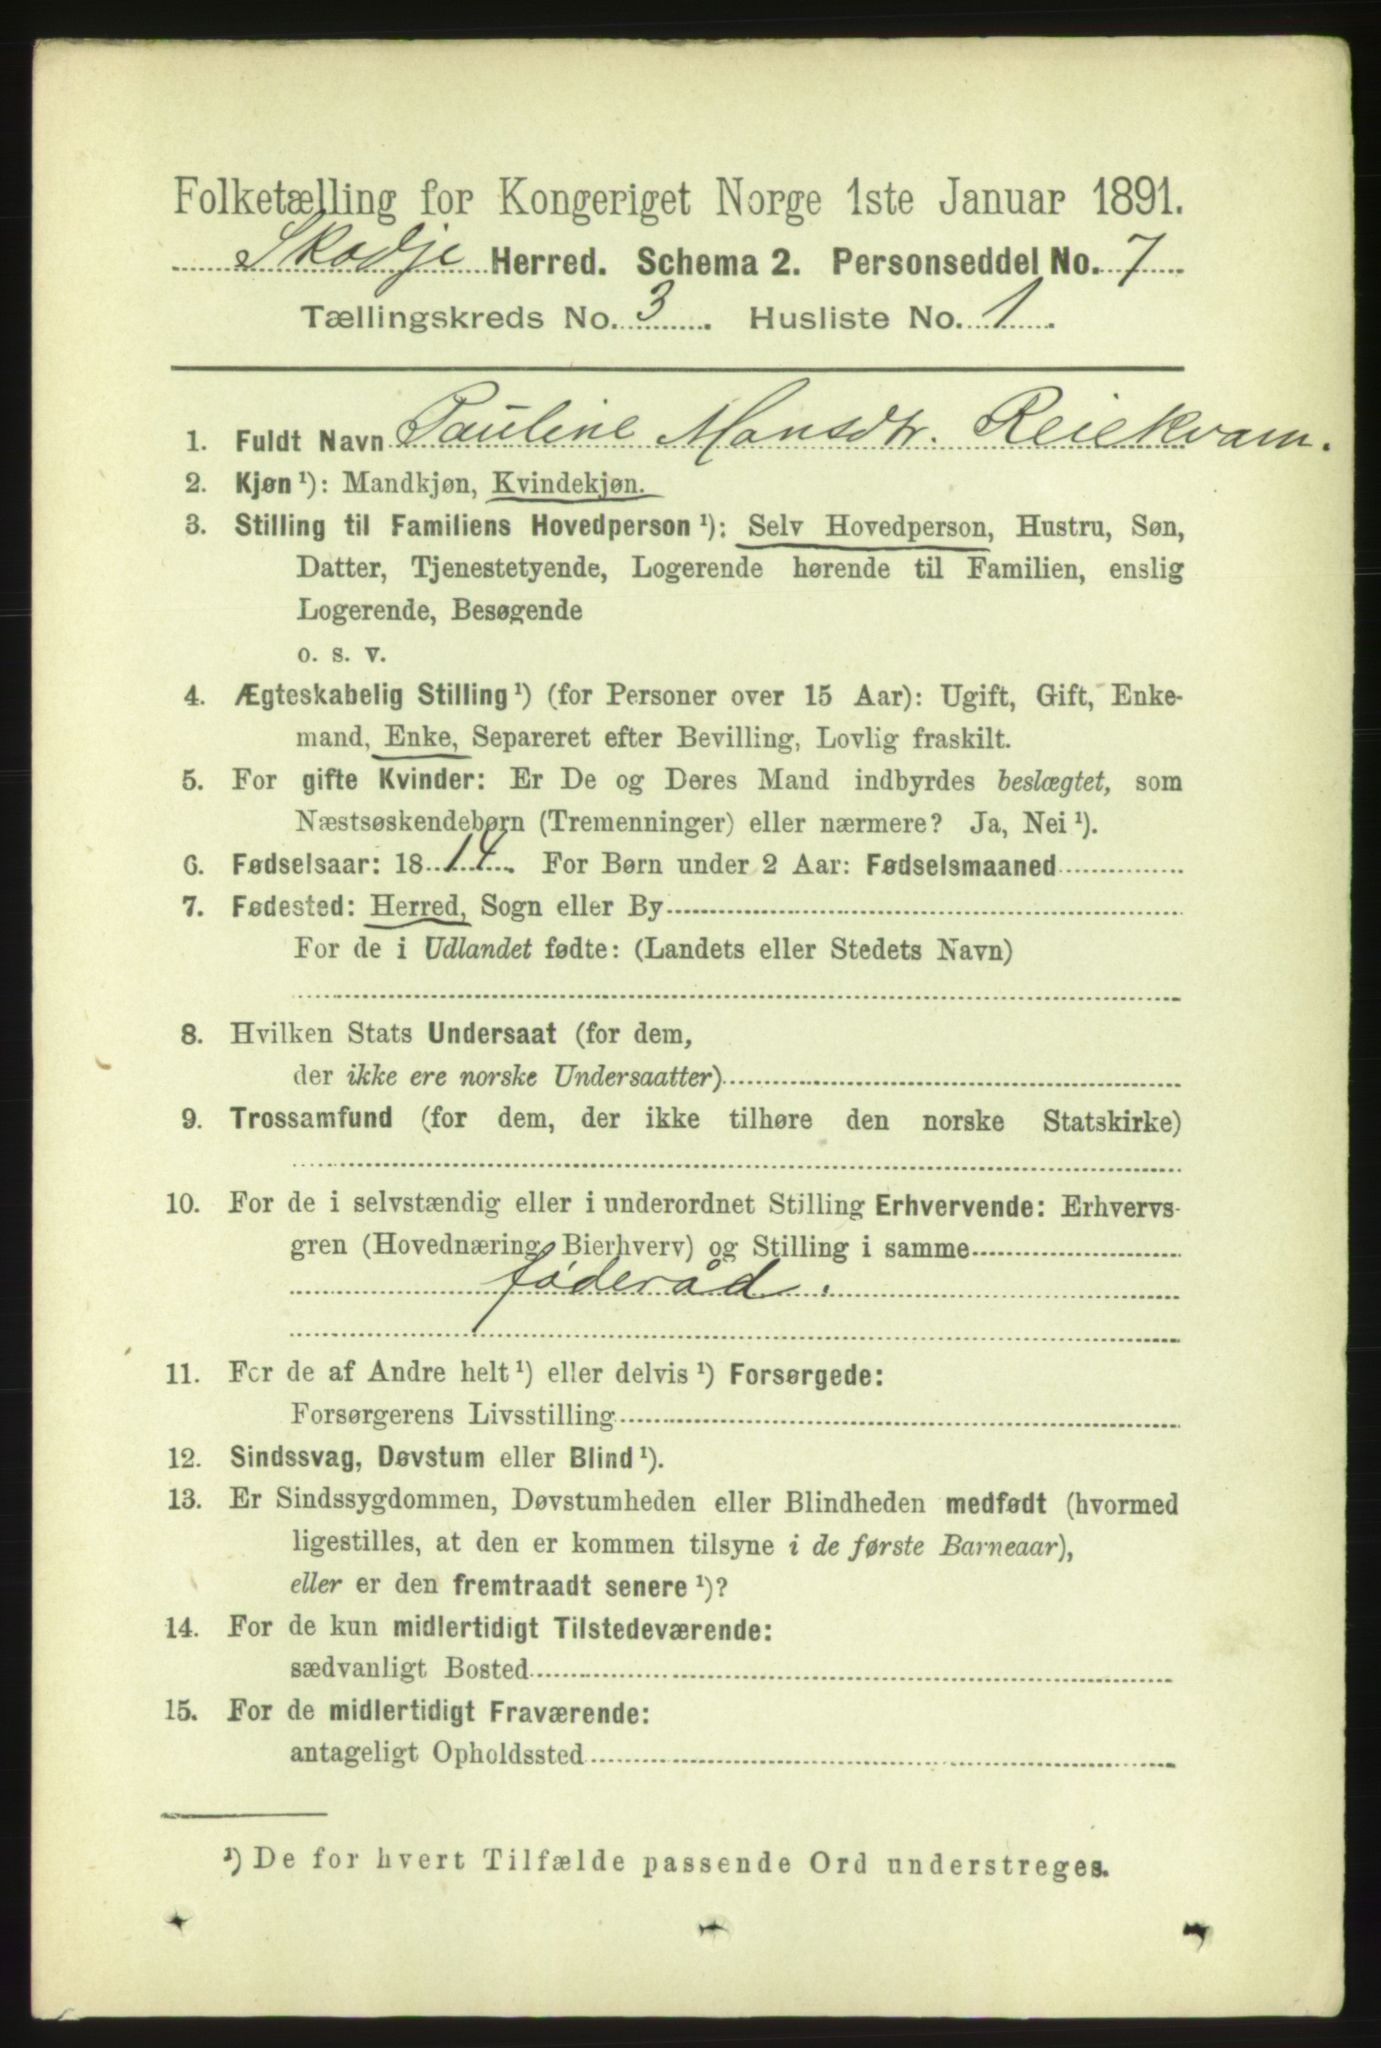 Folketælling for Kongeriget Norge 1ste Januar 1891.
Skodje Herred. Schema 2. Personseddel No. 7
Tællingskreds No. 3. Husliste No. 1.
1. Fuldt Navn Pauline Monsdtr. Reiekvam.
2. Kjøn ¹): Mandkjøn, Kvindekjøn.
3. Stilling til Familiens Hovedperson ¹): Selv Hovedperson, Hustru, Søn,
Datter, Tjenestetyende, Logerende hørende til Familien, enslig
Logerende, Besøgende
o. s. v.
4. Ægteskabelig Stilling ¹) (for Personer over 15 Aar): Ugift, Gift, Enke-
mand, Enke, Separeret efter Bevilling, Lovlig fraskilt.
5. For gifte Kvinder: Er De og Deres Mand indbyrdes beslægtet, som
Næstsøskendebørn (Tremenninger) eller nærmere? Ja, Nei ¹).
6. Fødselsaar: 1814. For Børn under 2 Aar: Fødselsmaaned
7. Fødested: Herred, Sogn eller By
For de i Udlandet fødte: (Landets eller Stedets Navn)
8. Hvilken Stats Undersaat (for dem,
der ikke ere norske Undersaatter)
9. Trossamfund (for dem, der ikke tilhøre den norske Statskirke)
10. For de i selvstændig eller i underordnet Stilling Erhvervende: Erhvervs-
gren (Hovednæring, Bierhverv) og Stilling i samme
føderåd.
11. For de af Andre helt ¹) eller delvis ¹) Forsørgede:
Forsørgerens Livsstilling
12. Sindssvag, Døvstum eller Blind ¹).
13. Er Sindssygdommen, Døvstumheden eller Blindheden medfødt (hvormed
ligestilles, at den er kommen tilsyne i de første Barneaar),
eller er den fremtraadt senere ¹)?
14. For de kun midlertidigt Tilstedeværende:
sædvanligt Bosted
15. For de midlertidigt Fraværende:
antageligt Opholdssted
¹) De for hvert Tilfælde passende Ord understreges.